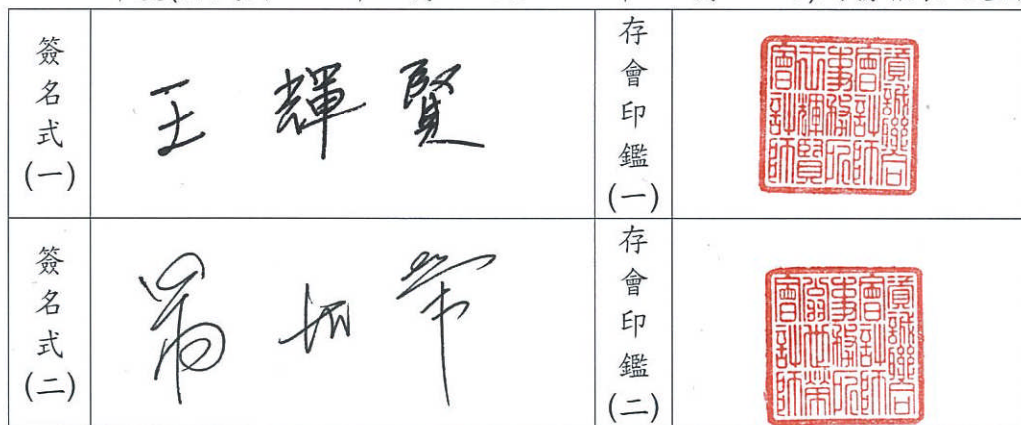 簽名式(一)
王輝賢
存會印鑑(一)
資誠聯合
會計師
事務所
王輝賢
會計師
簽名式(二)
翁世榮
存會印鑑(二)
資誠聯合
會計師
事務所
翁世榮
會計師